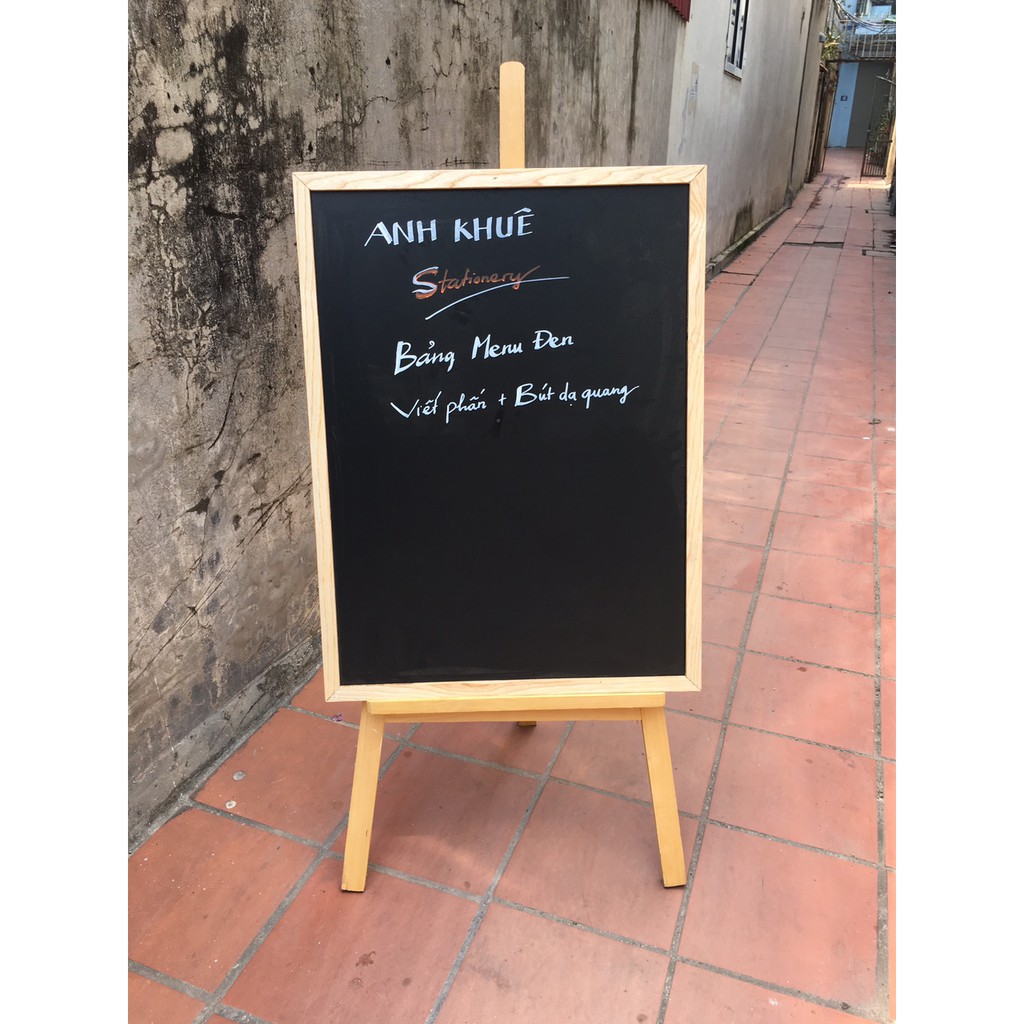 ANH KHUÊ
Stationery
Bảng Menu Đen
Viết phấn + Bút dạ quang